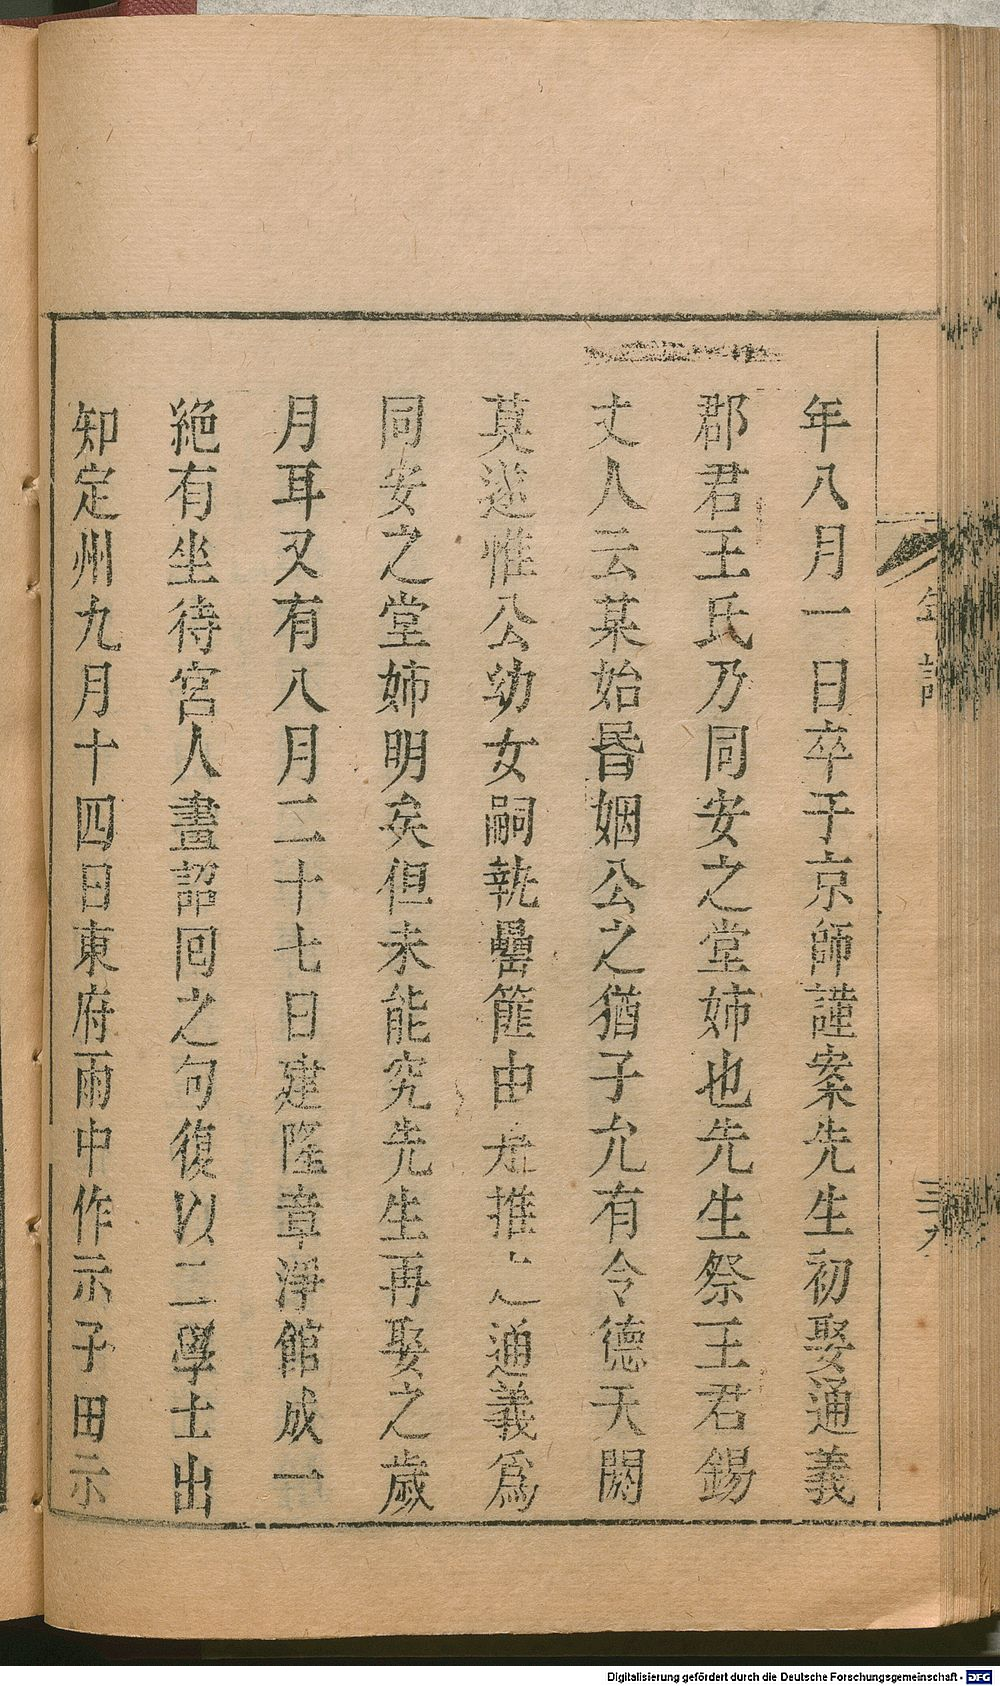 年八月一日卒于京師謹案先生初娶通義
郡君王氏乃同安之堂姊也先生祭王君錫
丈人云某始昬姻公之猶子允有令德夭闕
莫遂惟公幼女嗣執罍篚由是推之通義爲
同安之堂姊明矣但未能究先生再娶之歲
月耳又有八月二十七日建隆章淨館成一
絶有坐待宮人畫詔回之句復以二學士出
知定州九月十四日東府雨中作示子田示
年譜
三九
Digitalisierung gefördert durch die Deutsche Forschungsgemeinschaft - DFG